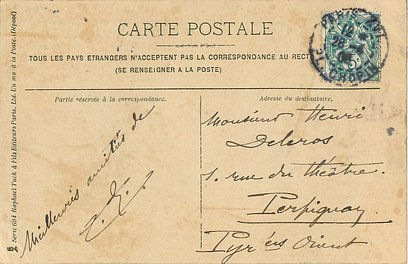 CARTE POSTALE
TOUS LES PAYS ETRANGERS N'ACCEPTENT PAS LA CORRESPONDANCE AU RECTO
(SE RENSEIGNER A LA POSTE)
Partie réservée à la correspondance.
Adresse du destinataire.
Meilleures amitiés de
Monsieur Henri
Delcros
1. rue du théatre.
Perpignan
Pyr ées Orient
Série 694 Raphael Tuck & Fils Editeurs Paris.